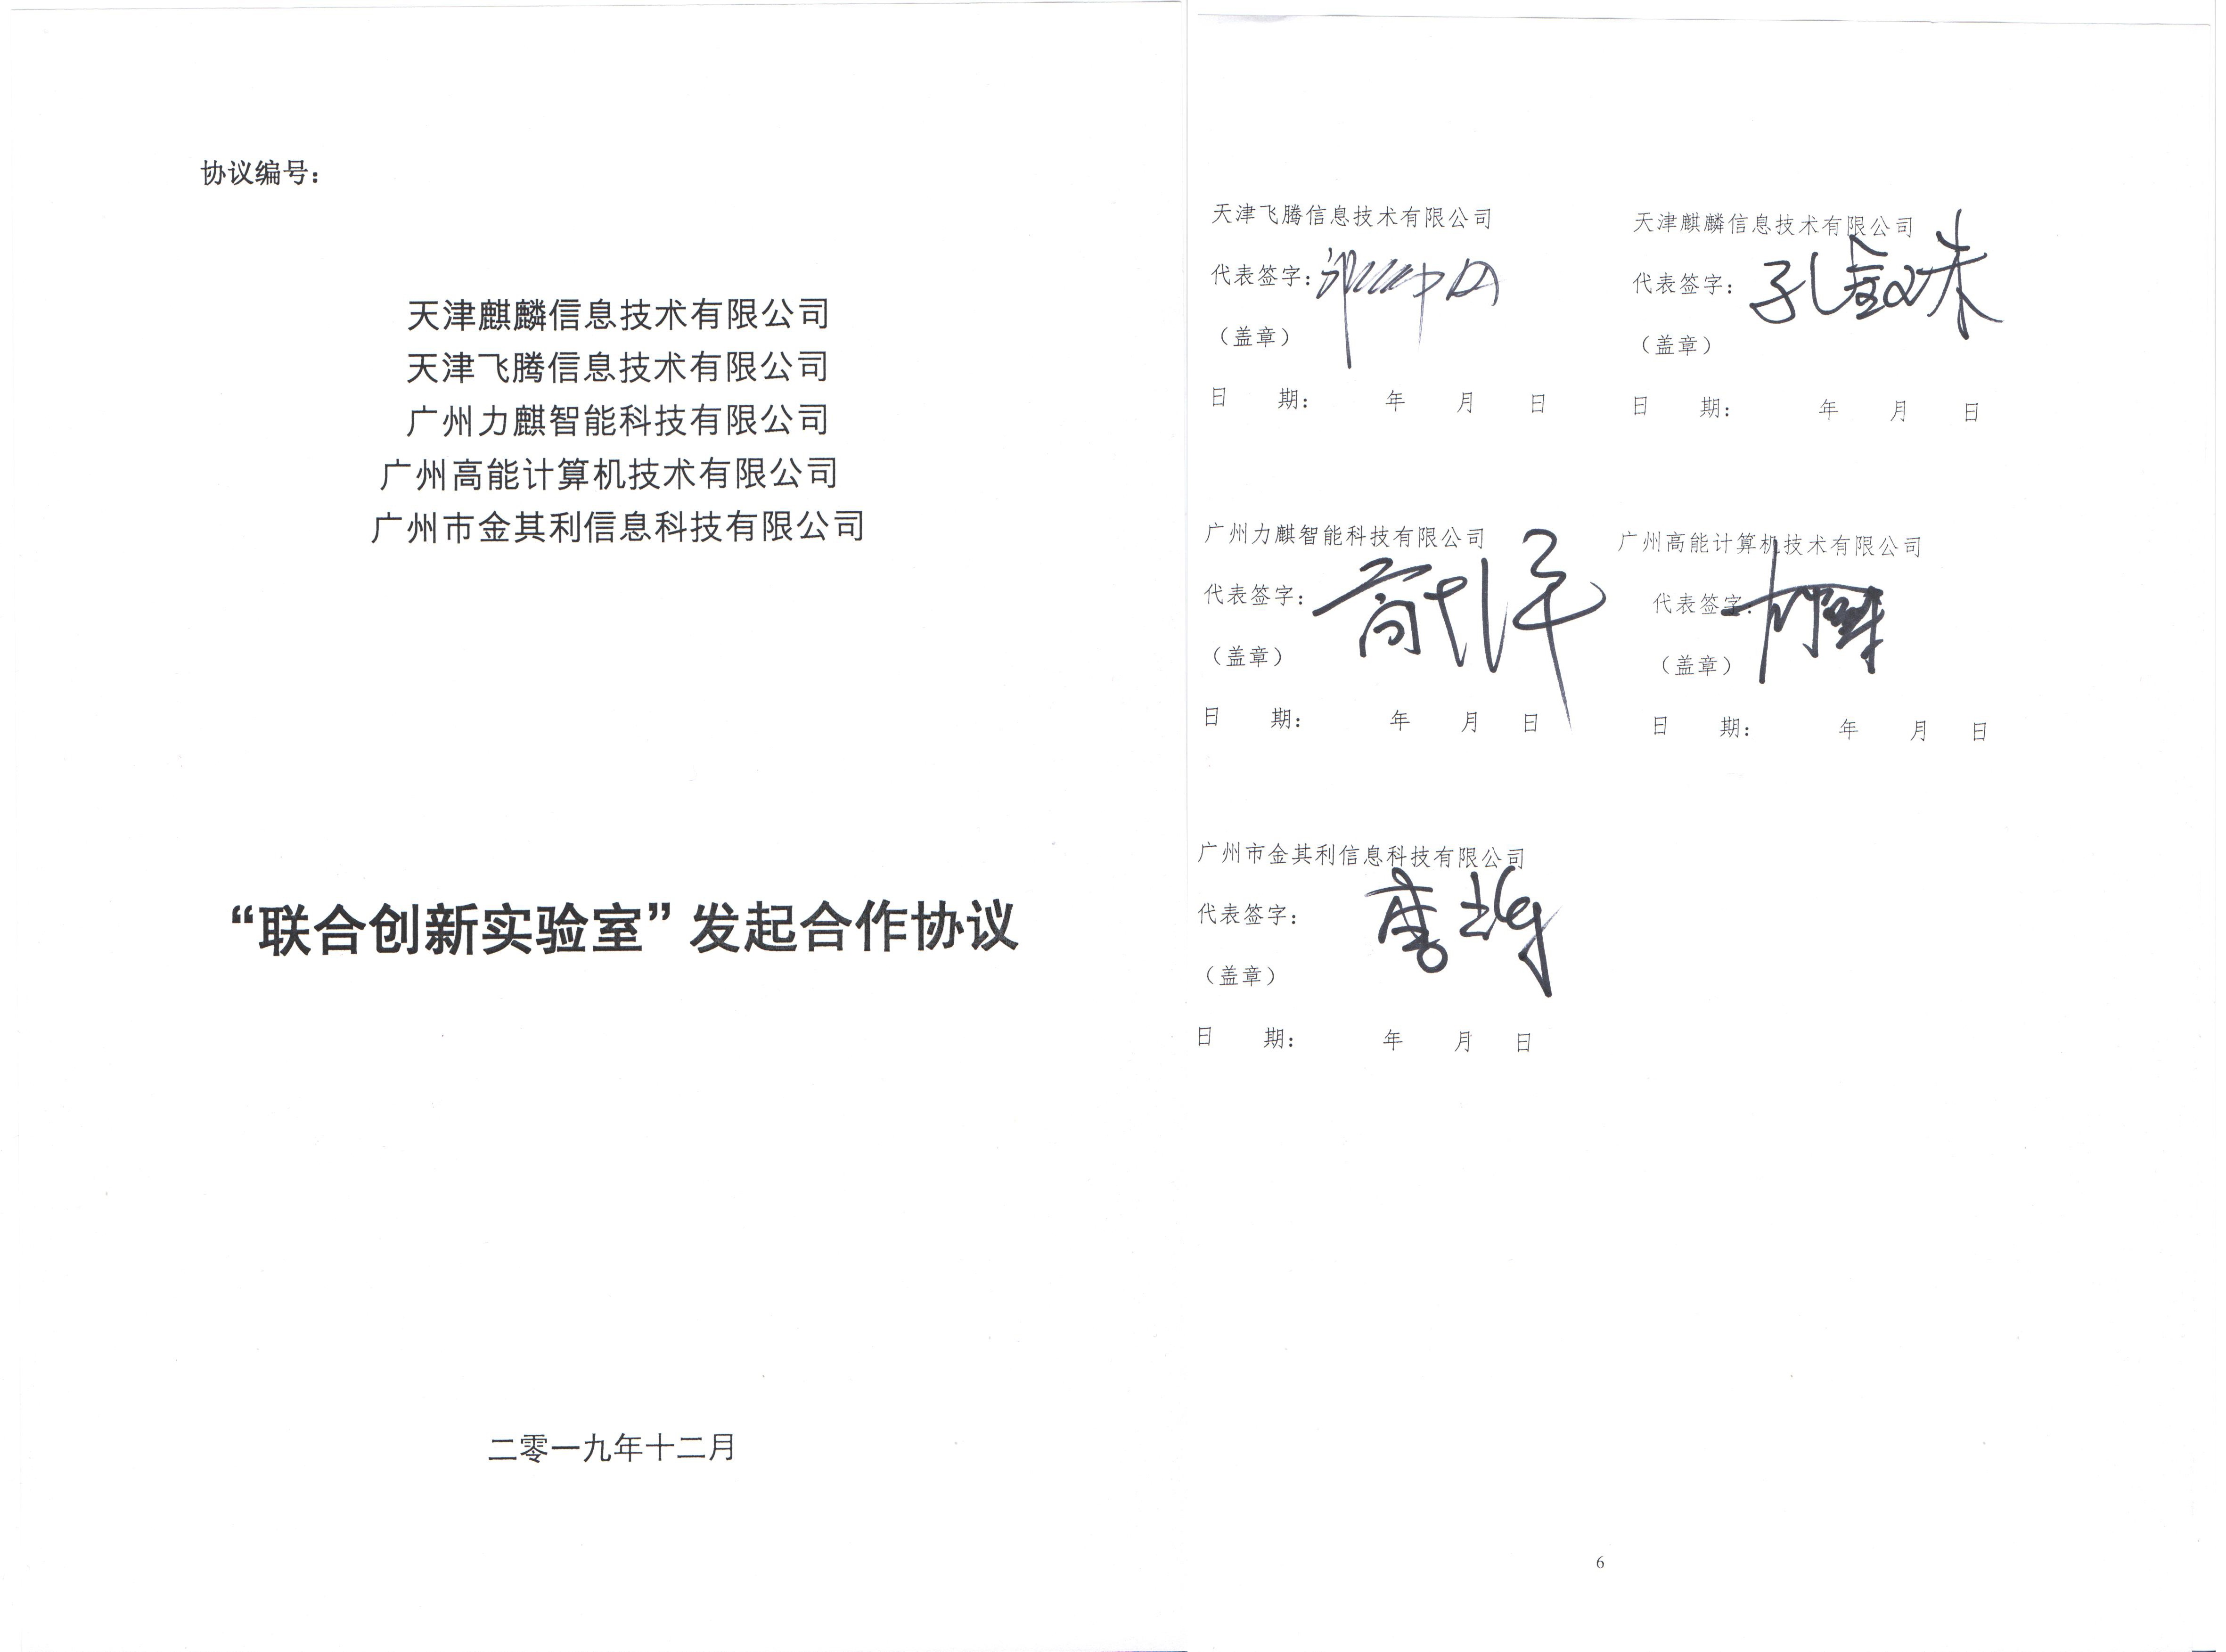 协议编号：
天津麒麟信息技术有限公司
天津飞腾信息技术有限公司
广州力麒智能科技有限公司
广州高能计算机技术有限公司
广州市金其利信息科技有限公司
“联合创新实验室”发起合作协议
二零一九年十二月
天津飞腾信息技术有限公司
代表签字：
（盖章）
日 期： 年 月 日
天津麒麟信息技术有限公司
代表签字：孔金珠
（盖章）
日 期： 年 月 日
广州力麒智能科技有限公司
代表签字：
（盖章）
日 期： 年 月 日
广州高能计算机技术有限公司
代表签字：
（盖章）
日 期： 年 月 日
广州市金其利信息科技有限公司
代表签字：
（盖章）
日 期： 年 月 日
6